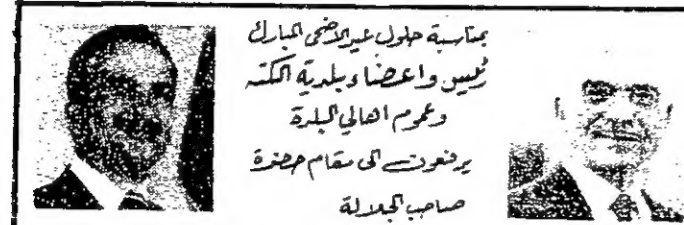 بمناسبة حلول عيد الاضحى المبارك
رئيس واعضاء بلدية الكته
وعموم اهالي البلدة
يرفعون الى مقام حضرة
صاحب الجلالة